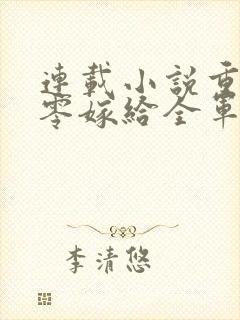 連載小説重
零嫁給全軍
李清悠